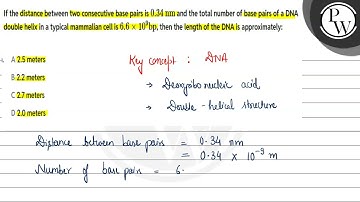 If the distance between two consecutive base pairs is 0.34 nm and the total number of base pairs of a DNA
double helix in a typical mammalian cell is 6.6 × 10⁹bp, then the length of the DNA is approximately:
A 2.5 meters
B 2.2 meters
C 2.7 meters
D 2.0 meters
PW
Key concept : DNA
→ Deoxyribo nucleic acid
→ Double - helical structure
Distance between base pairs = 0.34 nm
= 0.34 × 10⁻⁹ m
Number of base pairs = 6.